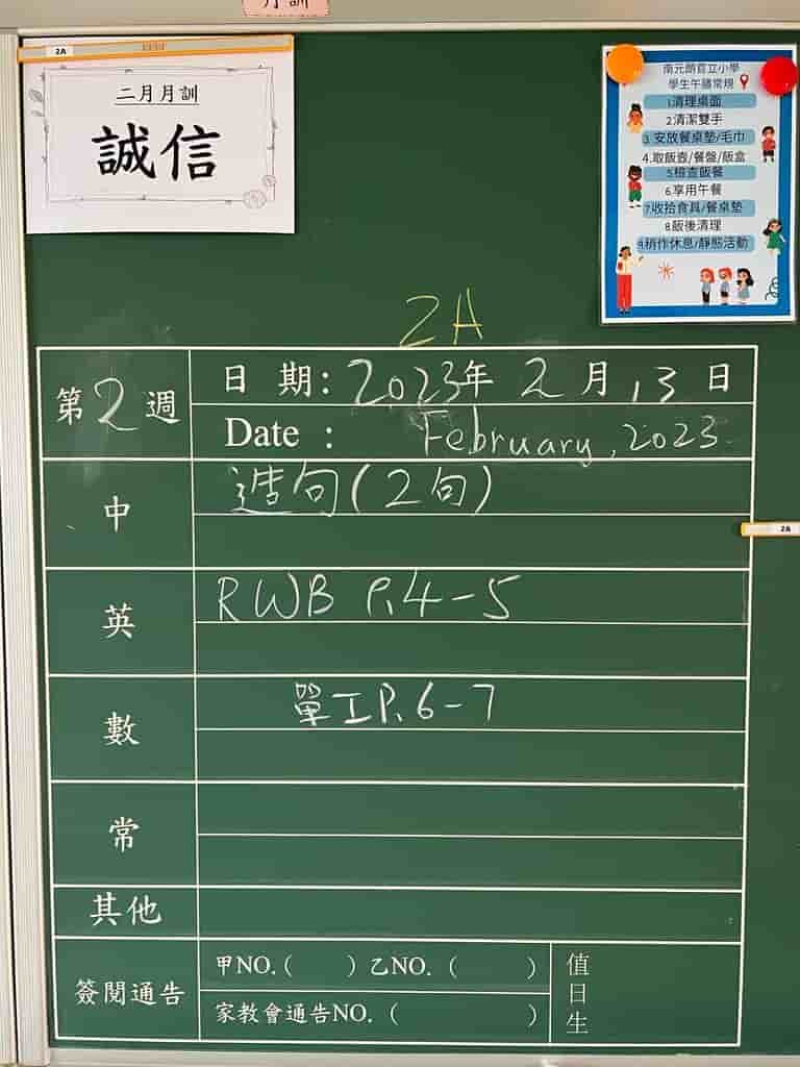 月訓
2A
二月月訓
誠信
南元朗官立小學
學生午膳常規
1.清理桌面
2.清潔雙手
3.安放餐桌墊/毛巾
4.取飯壺/餐盤/飯盒
5.檢查飯餐
6.享用午餐
7.收拾食具/餐桌墊
8.飯後清理
9.稍作休息/靜態活動
2A
第2週
日 期：2023年 2 月 13 日
Date ： February, 2023
中 造句(2句)
2A
英 RWB P.4-5
數 單工P.6-7
常
其他
簽閱通告
甲NO.( ) 乙NO. ( )
家教會通告NO. ( )
值日生